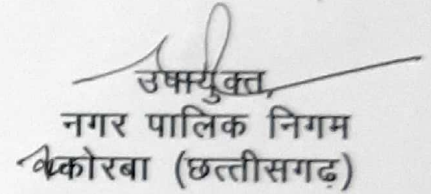 उपायुक्त
नगर पालिक निगम
कोरबा (छत्तीसगढ़)